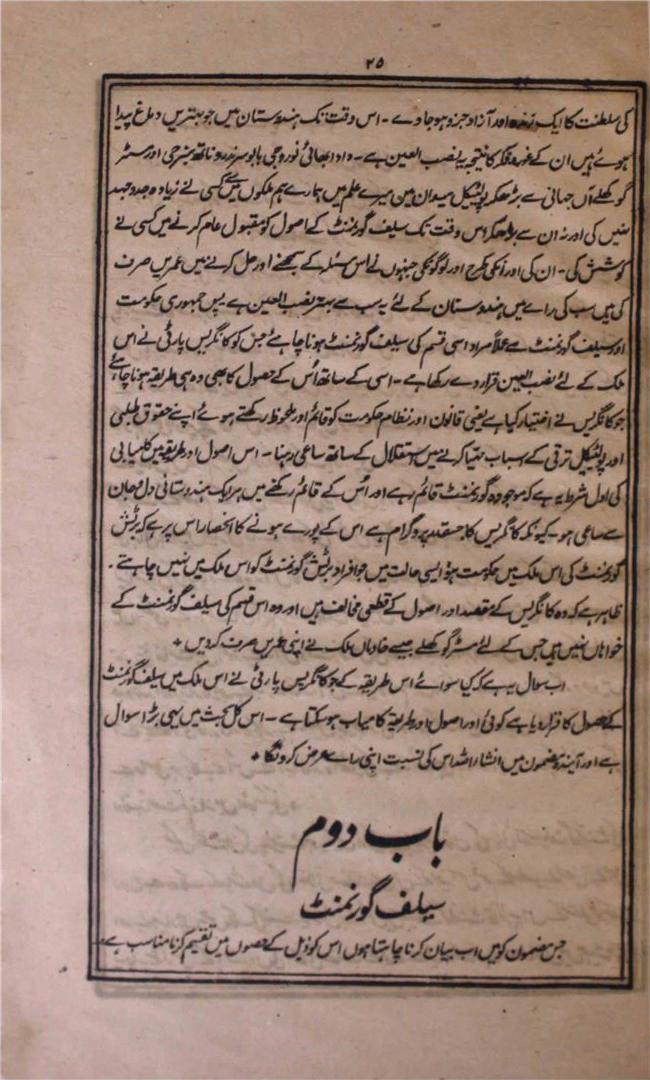 ۲۵
کی سلطنت کا ایک زندہ اور آزاد جزو ہو جاوے ۔ اس وقت تک ہندوستان میں جو بہترین دماغ پیدا
ہوئے ہیں ان کے غور و فکر کا نتیجہ یہ نصب العین ہے ۔ دادا بھائی نوروجی بابو سرندرو ناتھ بنرجی اور مسٹر
گوکھلے آں جہانی سے بڑھکر پولٹیکل میدان مین میرے علم میں ہمارے ہم ملکوں میں سے کسی نے زیادہ جد و جہد
نہیں کی اور نہ ان سے بڑھکر اس وقت تک سیلف گورنمنٹ کے اصول کو مقبول عام کرنے میں کسی نے
کوشش کی ۔ ان کی اور انکی طرح اور لوگونکی جنہوں نے اس مسئلہ کے سمجھنے اور حل کرنے میں عمریں صرف
کی ہیں سب کی رائے میں ہندوستان کے لئے یہ سب سے بہتر نصب العین ہے پس جمہوری حکومت
اور سیلف گورنمنٹ سے عملاً مراد اسی قسم کی سیلف گورنمنٹ ہونا چاہئے جس کو کانگریس پارٹی نے اس
ملک کے لئے نصب العین قرار دے رکھا ہے ۔ اسی کے ساتھ اُس کے حصول کا بھی وہ ہی طریقہ ہونا چاہئے
جو کانگریس نے اختیار کیا ہے یعنی قانون اور نظام حکومت کو قائم اور ملحوظ رکھتے ہوئے اپنے حقوق طلبی
اور پولٹیکل ترقی کے اسباب مہیا کرنے میں استقلال کے ساتھ ساعی رہنا ۔ اس اصول اور طریقہ میں کامیابی
کی اول شرط یہ ہے کہ موجودہ گورنمنٹ قائم رہے اور اُس کے قائم رکھنے میں ہر ایک ہندوستانی دل و جان
سے ساعی ہو ۔ کیونکہ کانگریس کا جسقدر پروگرام ہے اس کے پورے ہونے کا انحصار اس پر ہے کہ برٹش
گورنمنٹ کی اس ملک میں حکومت ہو ایسی حالت میں جو افراد برٹش گورنمنٹ کو اس ملک میں نہیں چاہتے ۔
ظاہر ہے کہ وہ کانگریس کے مقصد اور اصول کے قطعی مخالف ہیں اور وہ اس قسم کی سیلف گورنمنٹ کے
خواہاں نہیں ہیں جس کے لئے مسٹر گوکھلے جیسے خادمان ملک نے اپنی عمریں صرف کر دیں ٭
اب سوال یہ ہے کہ کیا سوائے اس طریقہ کے جو کانگریس پارٹی نے اس ملک میں سیلف گورنمنٹ
کے حصول کا قرار دیا ہے کوئی اور اصول اور طریقہ کامیاب ہو سکتا ہے ۔ اس کل بحث میں یہی بڑا سوال
ہے اور آیندہ مضمون میں انشاء اللہ اس کی نسبت اپنی رائے عرض کرونگا ٭
باب دوم
سیلف گورنمنٹ
جس مضمون کو میں اب بیان کرنا چاہتا ہوں اس کو ذیل کے حصوں میں تقسیم کرنا مناسب ہے ۔